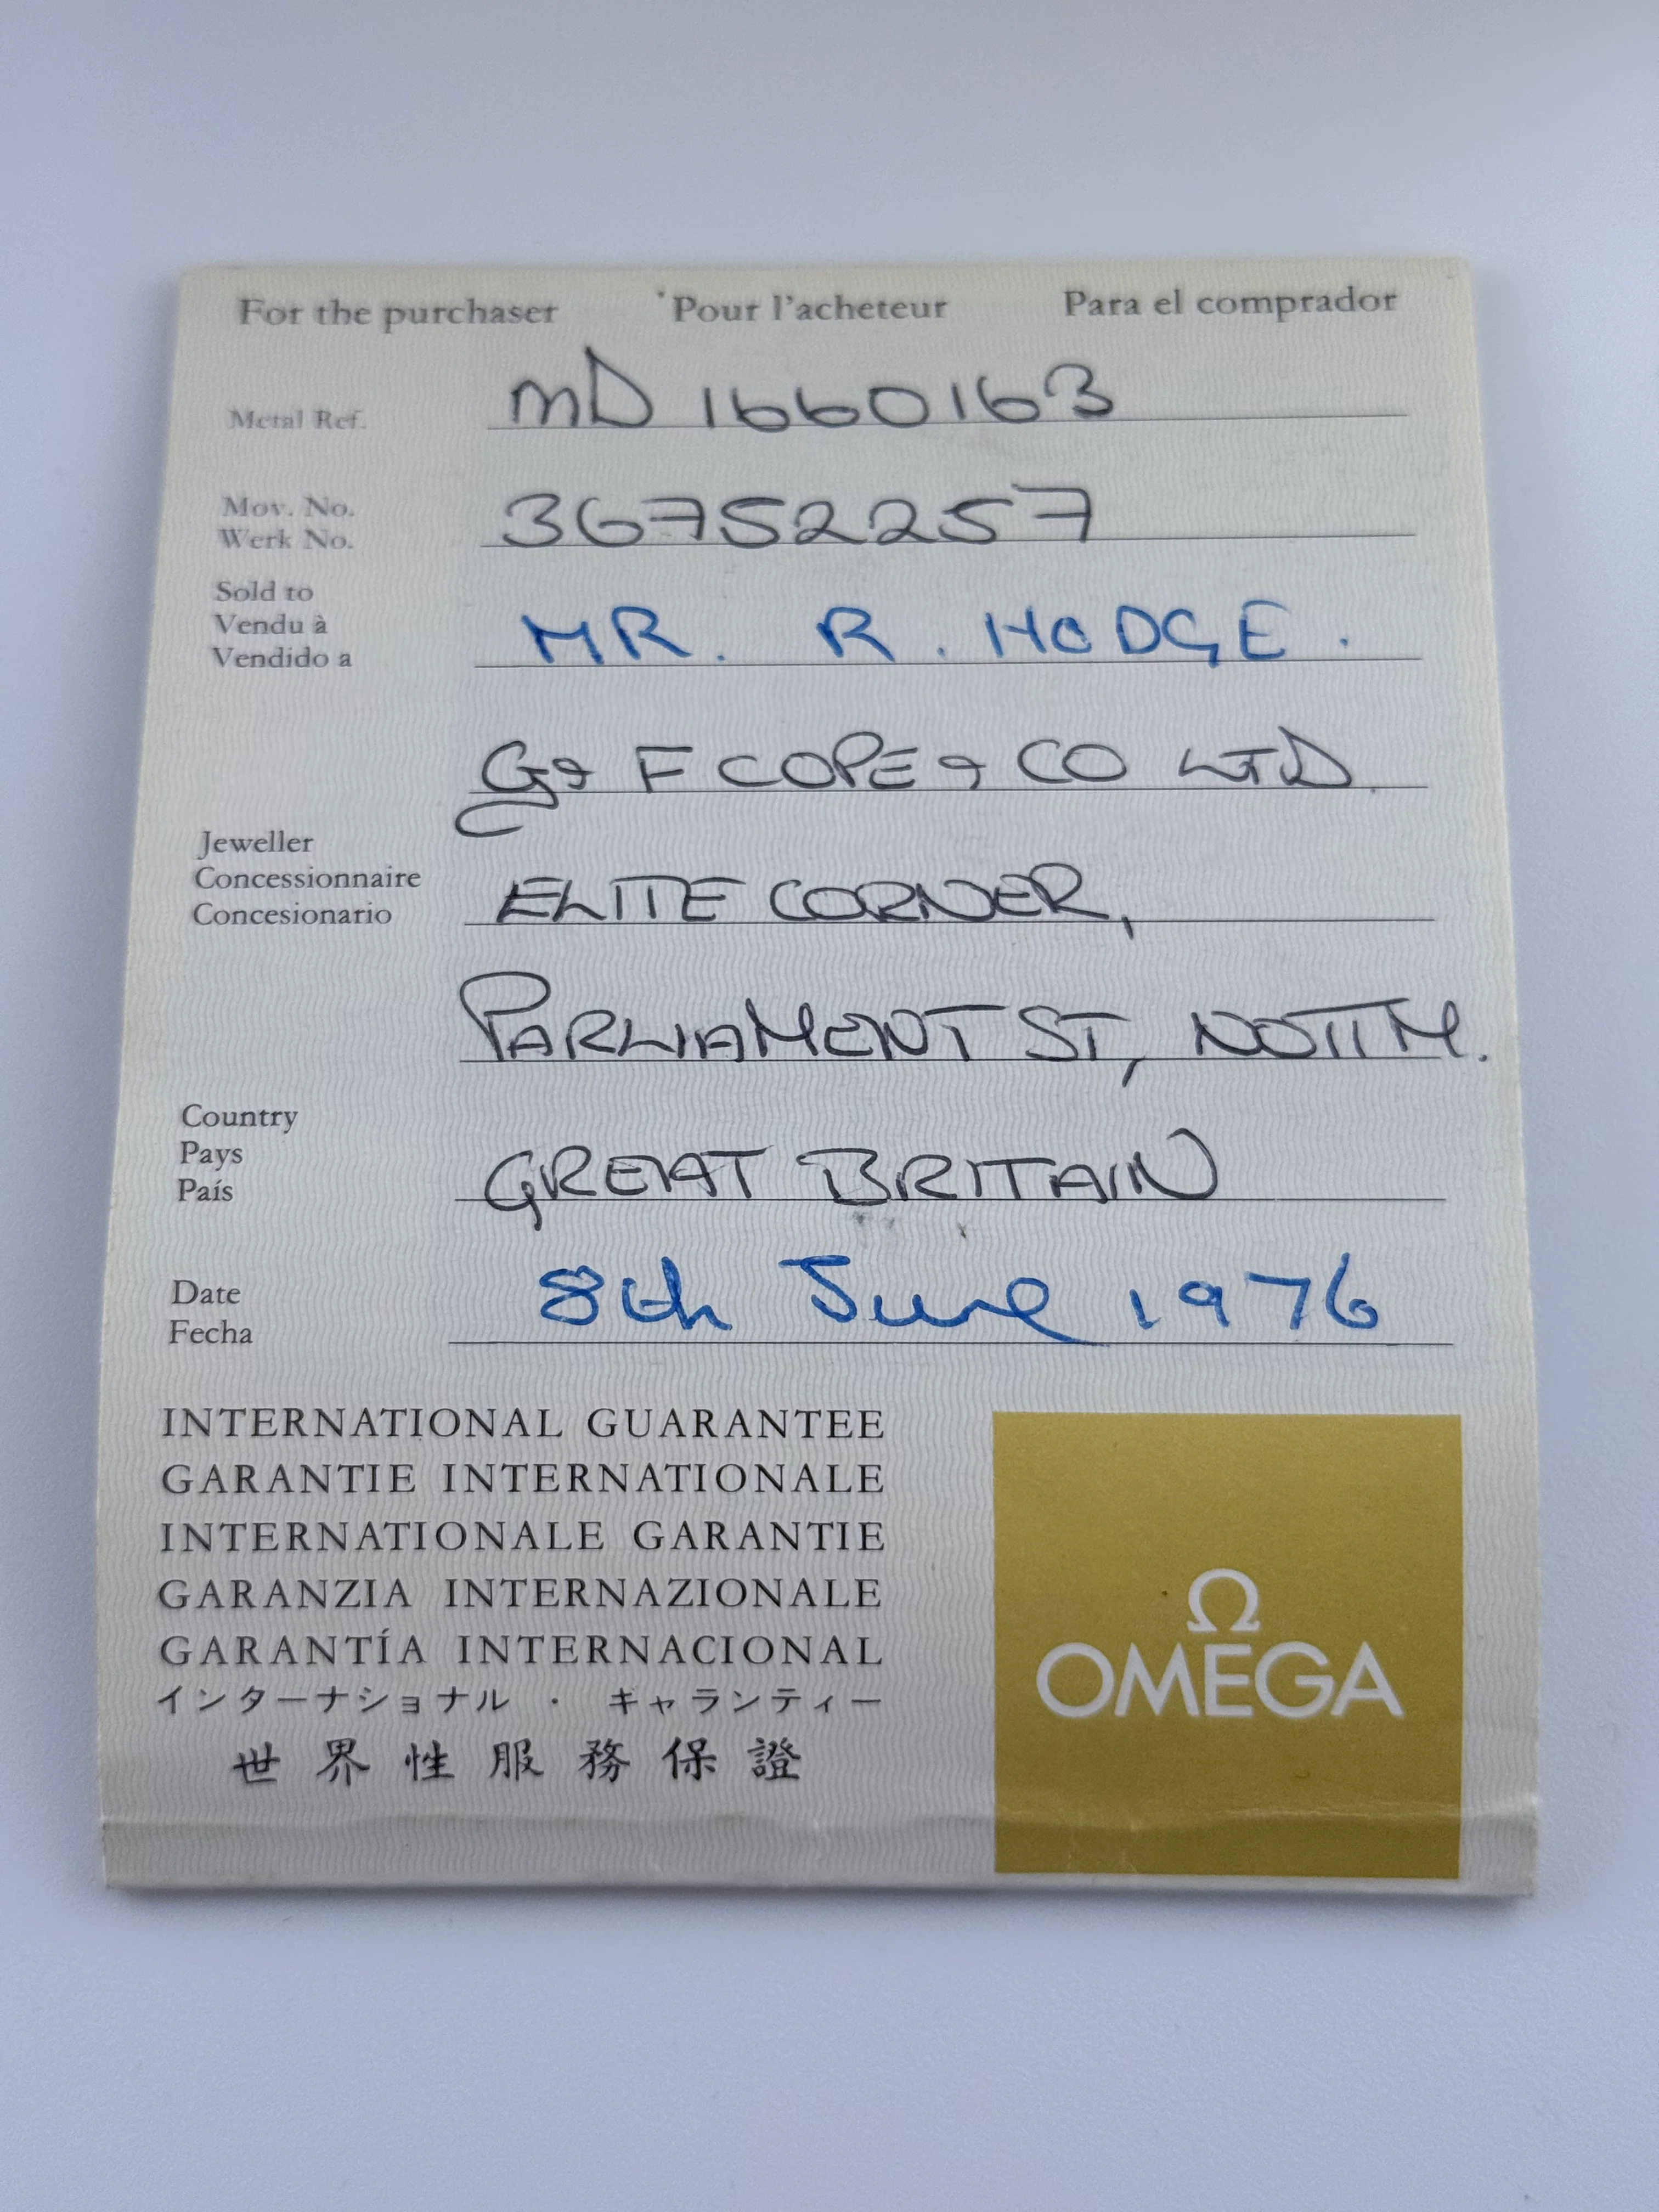 For the purchaser Pour l'acheteur Para el comprador
Metal Ref. MD 1660163
Mov. No.
Werk No. 36752257
Sold to
Vendu à
Vendido a MR. R. HODGE.
G & F COPE & CO LTD.
Jeweller
Concessionnaire
Concesionario ELITE CORNER,
PARLIAMENT ST, NOTTM.
Country
Pays
País GREAT BRITAIN
Date
Fecha 8th June 1976
INTERNATIONAL GUARANTEE
GARANTIE INTERNATIONALE
INTERNATIONALE GARANTIE
GARANZIA INTERNAZIONALE
GARANTÍA INTERNACIONAL
インターナショナル・キャランティー
世界性服務保證
Ω
OMEGA